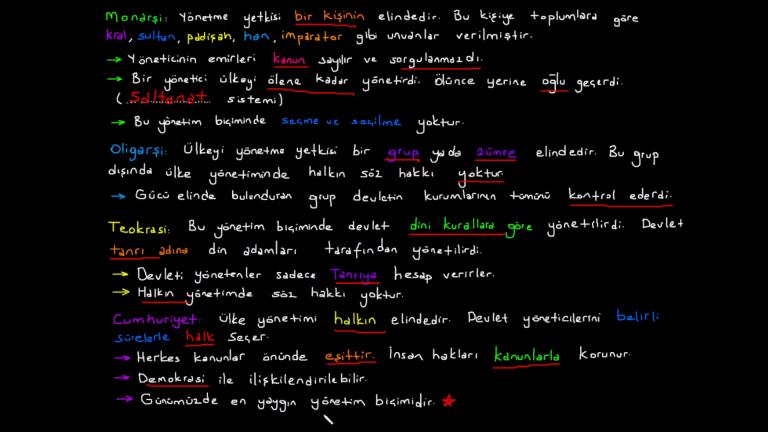 Monarşi: Yönetme yetkisi bir kişinin elindedir. Bu kişiye toplumlara göre
kral, sultan, padişah, han, imparator gibi unvanlar verilmiştir.
→ Yöneticinin emirleri kanun sayılır ve sorgulanmazdı.
→ Bir yönetici ülkeyi ölene kadar yönetirdi. Ölünce yerine oğlu geçerdi.
(...Saltanat... sistemi)
→ Bu yönetim biçiminde seçme ve seçilme yoktur.
Oligarşi: Ülkeyi yönetme yetkisi bir grup yada zümre elindedir. Bu grup
dışında ülke yönetiminde halkın söz hakkı yoktur.
→ Gücü elinde bulunduran grup devletin kurumlarının tümünü kontrol ederdi.
Teokrasi: Bu yönetim biçiminde devlet dini kurallara göre yönetilirdi. Devlet
tanrı adına din adamları tarafından yönetilirdi.
→ Devleti yönetenler sadece Tanrıya hesap verirler.
→ Halkın yönetimde söz hakkı yoktur.
Cumhuriyet: Ülke yönetimi halkın elindedir. Devlet yöneticilerini belirli
sürelerle halk seçer.
→ Herkes kanunlar önünde eşittir. İnsan hakları kanunlarla korunur.
→ Demokrasi ile ilişkilendirilebilir.
→ Günümüzde en yaygın yönetim biçimidir. ★